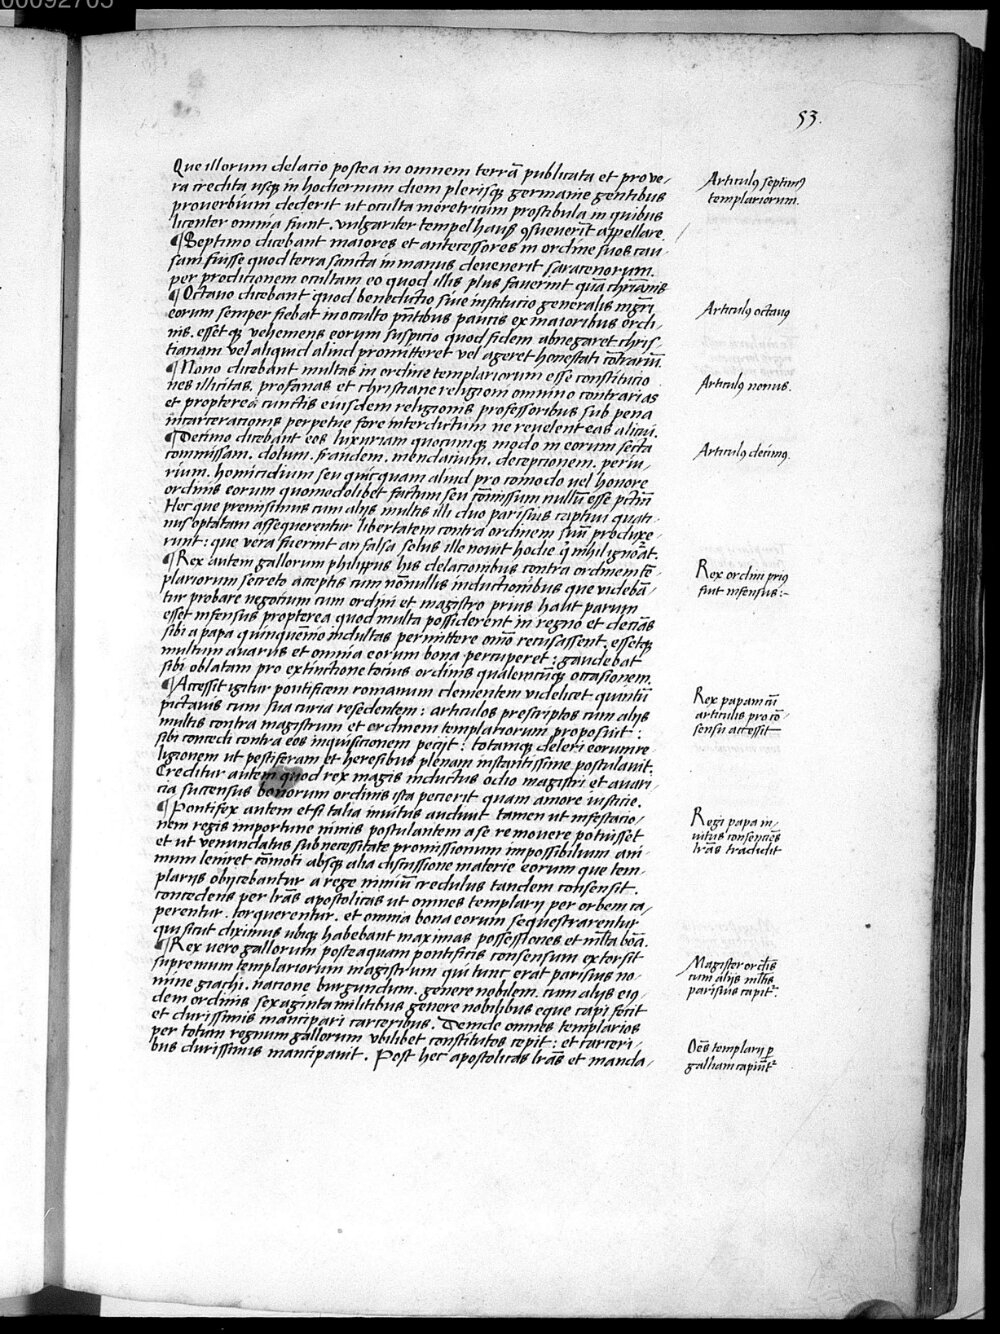 00092705
53.
Que illorum delacio postea in omnem terrā publicata et pro ve/
ra credita usq; in hodiernum diem plerisq; germanie gentibus
proverbium dederit ut oculta meretricum prostibula in quibus
licenter omnia fiunt. vulgariter tempel hauß ꝯsueverīt appellare.
¶ Septimo dicebant maiores et antecessores in ordine suos cau/
sam fuisse quod terra sancta in manus devenerit saracenorum.
per prodicionem ocultam eo quod illis plus faverint quā chrianis
¶ Octavo dicebant quod benedictio sive institucio generalis mgr̄i
eorum semper fiebat in oculto pn̄tibus paucis ex maioribus ordi/
nis. esset q; vehemens eorum suspicio quod fidem abnegaret chris/
tianam vel aliquid aliud promitteret vel ageret honestati ꝯtrariū.
¶ Nono dicebant multas in ordine templariorum esse constitucio
nes illicitas, profanas et christiane religioni omnino contrarias
et propterea cunctis eiusdem religionis professoribus sub pena
incarceracionis perpetue fore interdictum ne revelent eas alicui.
¶ Decimo dicebant eos luxuriam quocumq; modo in eorum secta
commissam. dolum. fraudem. mendacium. deceptionem. periu/
rium. homicidium seu quicquam aliud pro comodo vel honore
ordinis eorum quomodolibet factum seu cōmissum nullū esse pctm̄
Hec que premisimus cum alijs multis illi duo parisius captivi quati/
nus optatam assequerentur libertatem contra ordinem suū produxe/
runt: que vera fuerint an falsa solus ille novit hodie q̇ nihil ignōāt.
¶ Rex autem gallorum philippus his delacionibus contra ordinem tē/
plariorum secreto acceptis cum nōnullis inductionibus que videbā/
tur probare negotium cum ordini et magistro prius haut parum
esset infensus propterea quod multa possiderent in regno et decias
sibi a papa quinquennio indultas permittere omīo recusassent. essetq;
multum avarus et omnia eorum bona percuperet: gaudebat
sibi oblatam pro extinctione tocius ordinis qualemcūq; occasionem.
¶ Accessit igitur pontificem romanum clementem videlicet quintū
pictavis cum sua curia residentem: articulos prescriptos cum alijs
multis contra magistrum et ordinem templariorum proposuit:
sibi concedi contra eos inquisicionem peciit: totamq; deleri eorum re/
ligionem ut pestiferam et heresibus plenam instantissime postulavit.
Creditur autem quod rex magis inductus odio magistri et avari/
cia succensus bonorum ordinis ista pecierit quam amore iusticie.
¶ Pontifex autem etsi talia invitus audivit tamen ut infestacio/
nem regis importune nimis postulantem a se removere potuisset
et ut venundatus sub necessitate promissionum impossibilium ani/
mum leniret cōmoti absq; alia discussione materie eorum que tem/
plarijs obijcebantur a rege nimiū credulus tandem consensit.
concedens per lr̄as apostolicas ut omnes templarij per orbem ca/
perentur. torquerentur. et omnia bona eorum sequestrarentur
qui sicut diximus ubiq; habebant maximas possessiones et mlta bōa.
¶ Rex vero gallorum posteaquam pontificis consensum extorsit
supremum templariorum magistrum qui tunc erat parisius no/
mine giachi. nacione burgundum. genere nobilem. cum alijs eiꝯ/
dem ordinis sexaginta militibus genere nobilibus eque capi fecit
et durissimis mancipari carceribus. Deinde omnes templarios
per totum regnum gallorum ubilibet constitutos cepit: et carceri/
bus durissimis mancipavit. Post hec apostolicas lr̄as et manda/
Articulꝯ septimꝯ
templariorum.
Articulꝯ octavꝯ
Articulꝯ nonus.
Articulꝯ decimꝯ
Rex ordini priꝯ
fuit infensus:-
Rex papam cū
articulis pro cō
sensu accessit
Regi papa in/
vitus consenciēs
lr̄as tradidit
Magister ordīs
cum alijs mltis
parisius capit᷑.
Oēs templarij p
galliam capiūt᷑